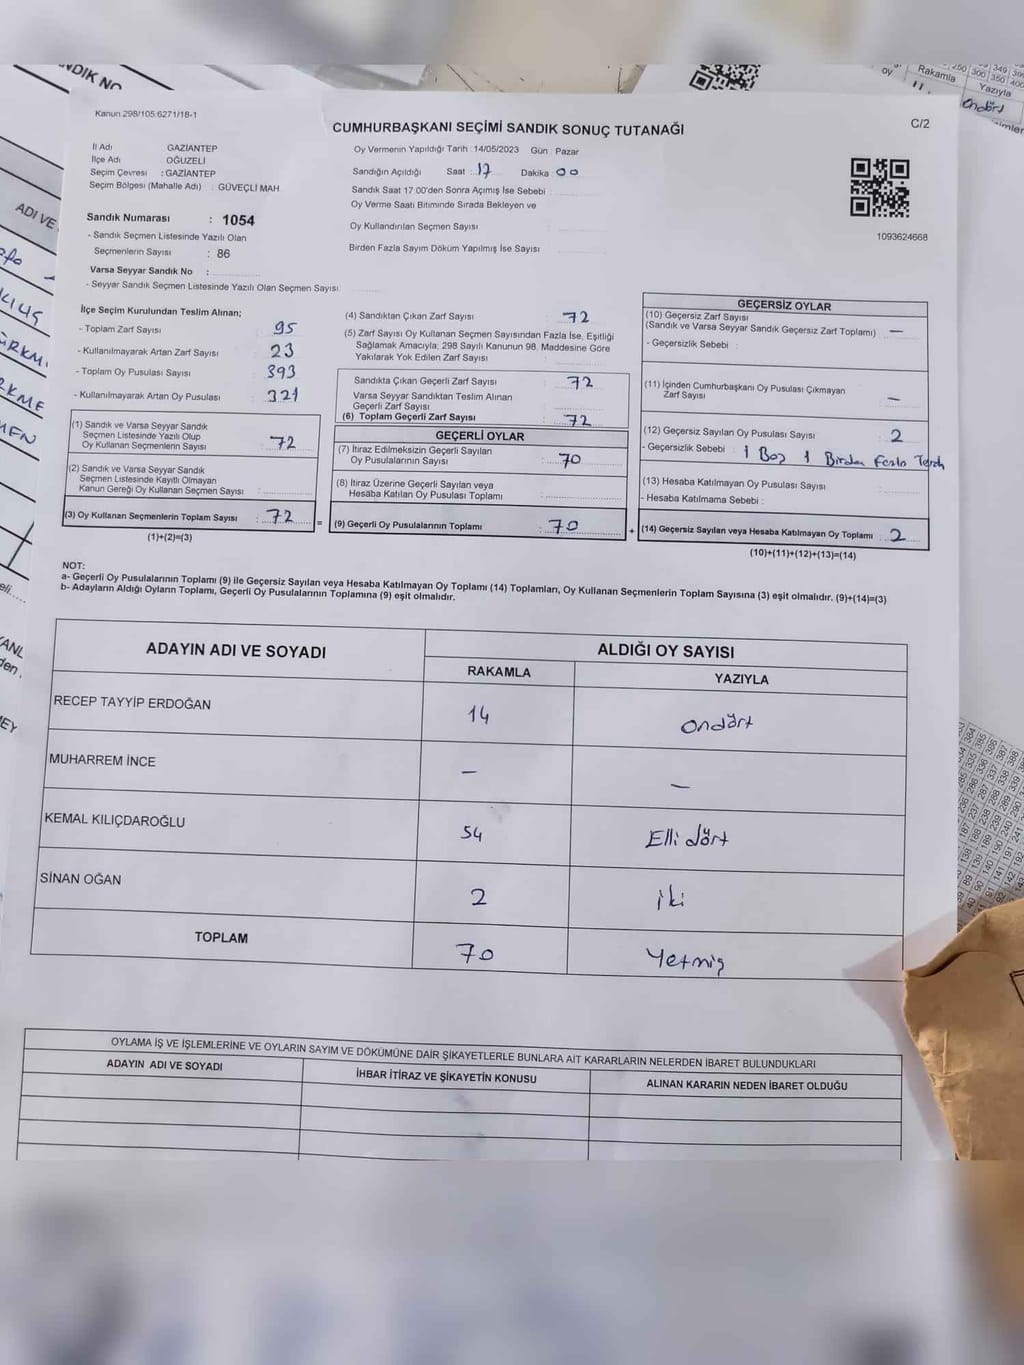 NDIK NO
ADI VE
Kanun 298/105 6271/18-1
CUMHURBAŞKANI SEÇİMİ SANDIK SONUÇ TUTANAĞI
C/2
İl Adı GAZİANTEP
İlçe Adı OĞUZELİ
Seçim Çevresi : GAZİANTEP
Seçim Bölgesi (Mahalle Adı) : GÜVEÇLİ MAH
Sandık Numarası : 1054
- Sandık Seçmen Listesinde Yazılı Olan
Seçmenlerin Sayısı : 86
Varsa Seyyar Sandık No :
- Seyyar Sandık Seçmen Listesinde Yazılı Olan Seçmen Sayısı:
Oy Vermenin Yapıldığı Tarih :14/05/2023 Gün : Pazar
Sandığın Açıldığı Saat : 17 Dakika 00
Sandık Saat 17:00'den Sonra Açımış İse Sebebi :
Oy Verme Saati Bitiminde Sırada Bekleyen ve
Oy Kullandırılan Seçmen Sayısı :
Birden Fazla Sayım Döküm Yapılmış İse Sayısı :
1093624668
İlçe Seçim Kurulundan Teslim Alınan;
- Toplam Zarf Sayısı : 95
- Kullanılmayarak Artan Zarf Sayısı : 23
- Toplam Oy Pusulası Sayısı : 393
- Kullanılmayarak Artan Oy Pusulası : 321
(1) Sandık ve Varsa Seyyar Sandık
Seçmen Listesinde Yazılı Olup
Oy Kullanan Seçmenlerin Sayısı : 72
(2) Sandık ve Varsa Seyyar Sandık
Seçmen Listesinde Kayıtlı Olmayan
Kanun Gereği Oy Kullanan Seçmen Sayısı :
(3) Oy Kullanan Seçmenlerin Toplam Sayısı : 72
(1)+(2)=(3)
(4) Sandıktan Çıkan Zarf Sayısı : 72
(5) Zarf Sayısı Oy Kullanan Seçmen Sayısından Fazla İse, Eşitliği
Sağlamak Amacıyla; 298 Sayılı Kanunun 98. Maddesine Göre
Yakılarak Yok Edilen Zarf Sayısı :
Sandıkta Çıkan Geçerli Zarf Sayısı : 72
Varsa Seyyar Sandıktan Teslim Alınan
Geçerli Zarf Sayısı :
(6) Toplam Geçerli Zarf Sayısı : 72
GEÇERLİ OYLAR
(7) İtiraz Edilmeksizin Geçerli Sayılan
Oy Pusulalarının Sayısı : 70
(8) İtiraz Üzerine Geçerli Sayılan veya
Hesaba Katılan Oy Pusulası Toplamı :
= (9) Geçerli Oy Pusulalarının Toplamı : 70
GEÇERSİZ OYLAR
(10) Geçersiz Zarf Sayısı
(Sandık ve Varsa Seyyar Sandık Geçersiz Zarf Toplamı) : —
- Geçersizlik Sebebi :
(11) İçinden Cumhurbaşkanı Oy Pusulası Çıkmayan
Zarf Sayısı : —
(12) Geçersiz Sayılan Oy Pusulası Sayısı : 2
- Geçersizlik Sebebi : 1 Boş 1 Birden Fazla Tercih
(13) Hesaba Katılmayan Oy Pusulası Sayısı :
- Hesaba Katılmama Sebebi :
+ (14) Geçersiz Sayılan veya Hesaba Katılmayan Oy Toplamı : 2
(10)+(11)+(12)+(13)=(14)
NOT:
a- Geçerli Oy Pusulalarının Toplamı (9) ile Geçersiz Sayılan veya Hesaba Katılmayan Oy Toplamı (14) Toplamları, Oy Kullanan Seçmenlerin Toplam Sayısına (3) eşit olmalıdır. (9)+(14)=(3)
b- Adayların Aldığı Oyların Toplamı, Geçerli Oy Pusulalarının Toplamına (9) eşit olmalıdır.
ADAYIN ADI VE SOYADI ALDIĞI OY SAYISI
RAKAMLA YAZIYLA
RECEP TAYYİP ERDOĞAN 14 Ondört
MUHARREM İNCE — —
KEMAL KILIÇDAROĞLU 54 Elli dört
SİNAN OĞAN 2 iki
TOPLAM 70 Yetmiş
OYLAMA İŞ VE İŞLEMLERİNE VE OYLARIN SAYIM VE DÖKÜMÜNE DAİR ŞİKAYETLERLE BUNLARA AİT KARARLARIN NELERDEN İBARET BULUNDUKLARI
ADAYIN ADI VE SOYADI İHBAR İTİRAZ VE ŞİKAYETİN KONUSU ALINAN KARARIN NEDEN İBARET OLDUĞU
oy
Rakamla
Yazıyla
Ondört